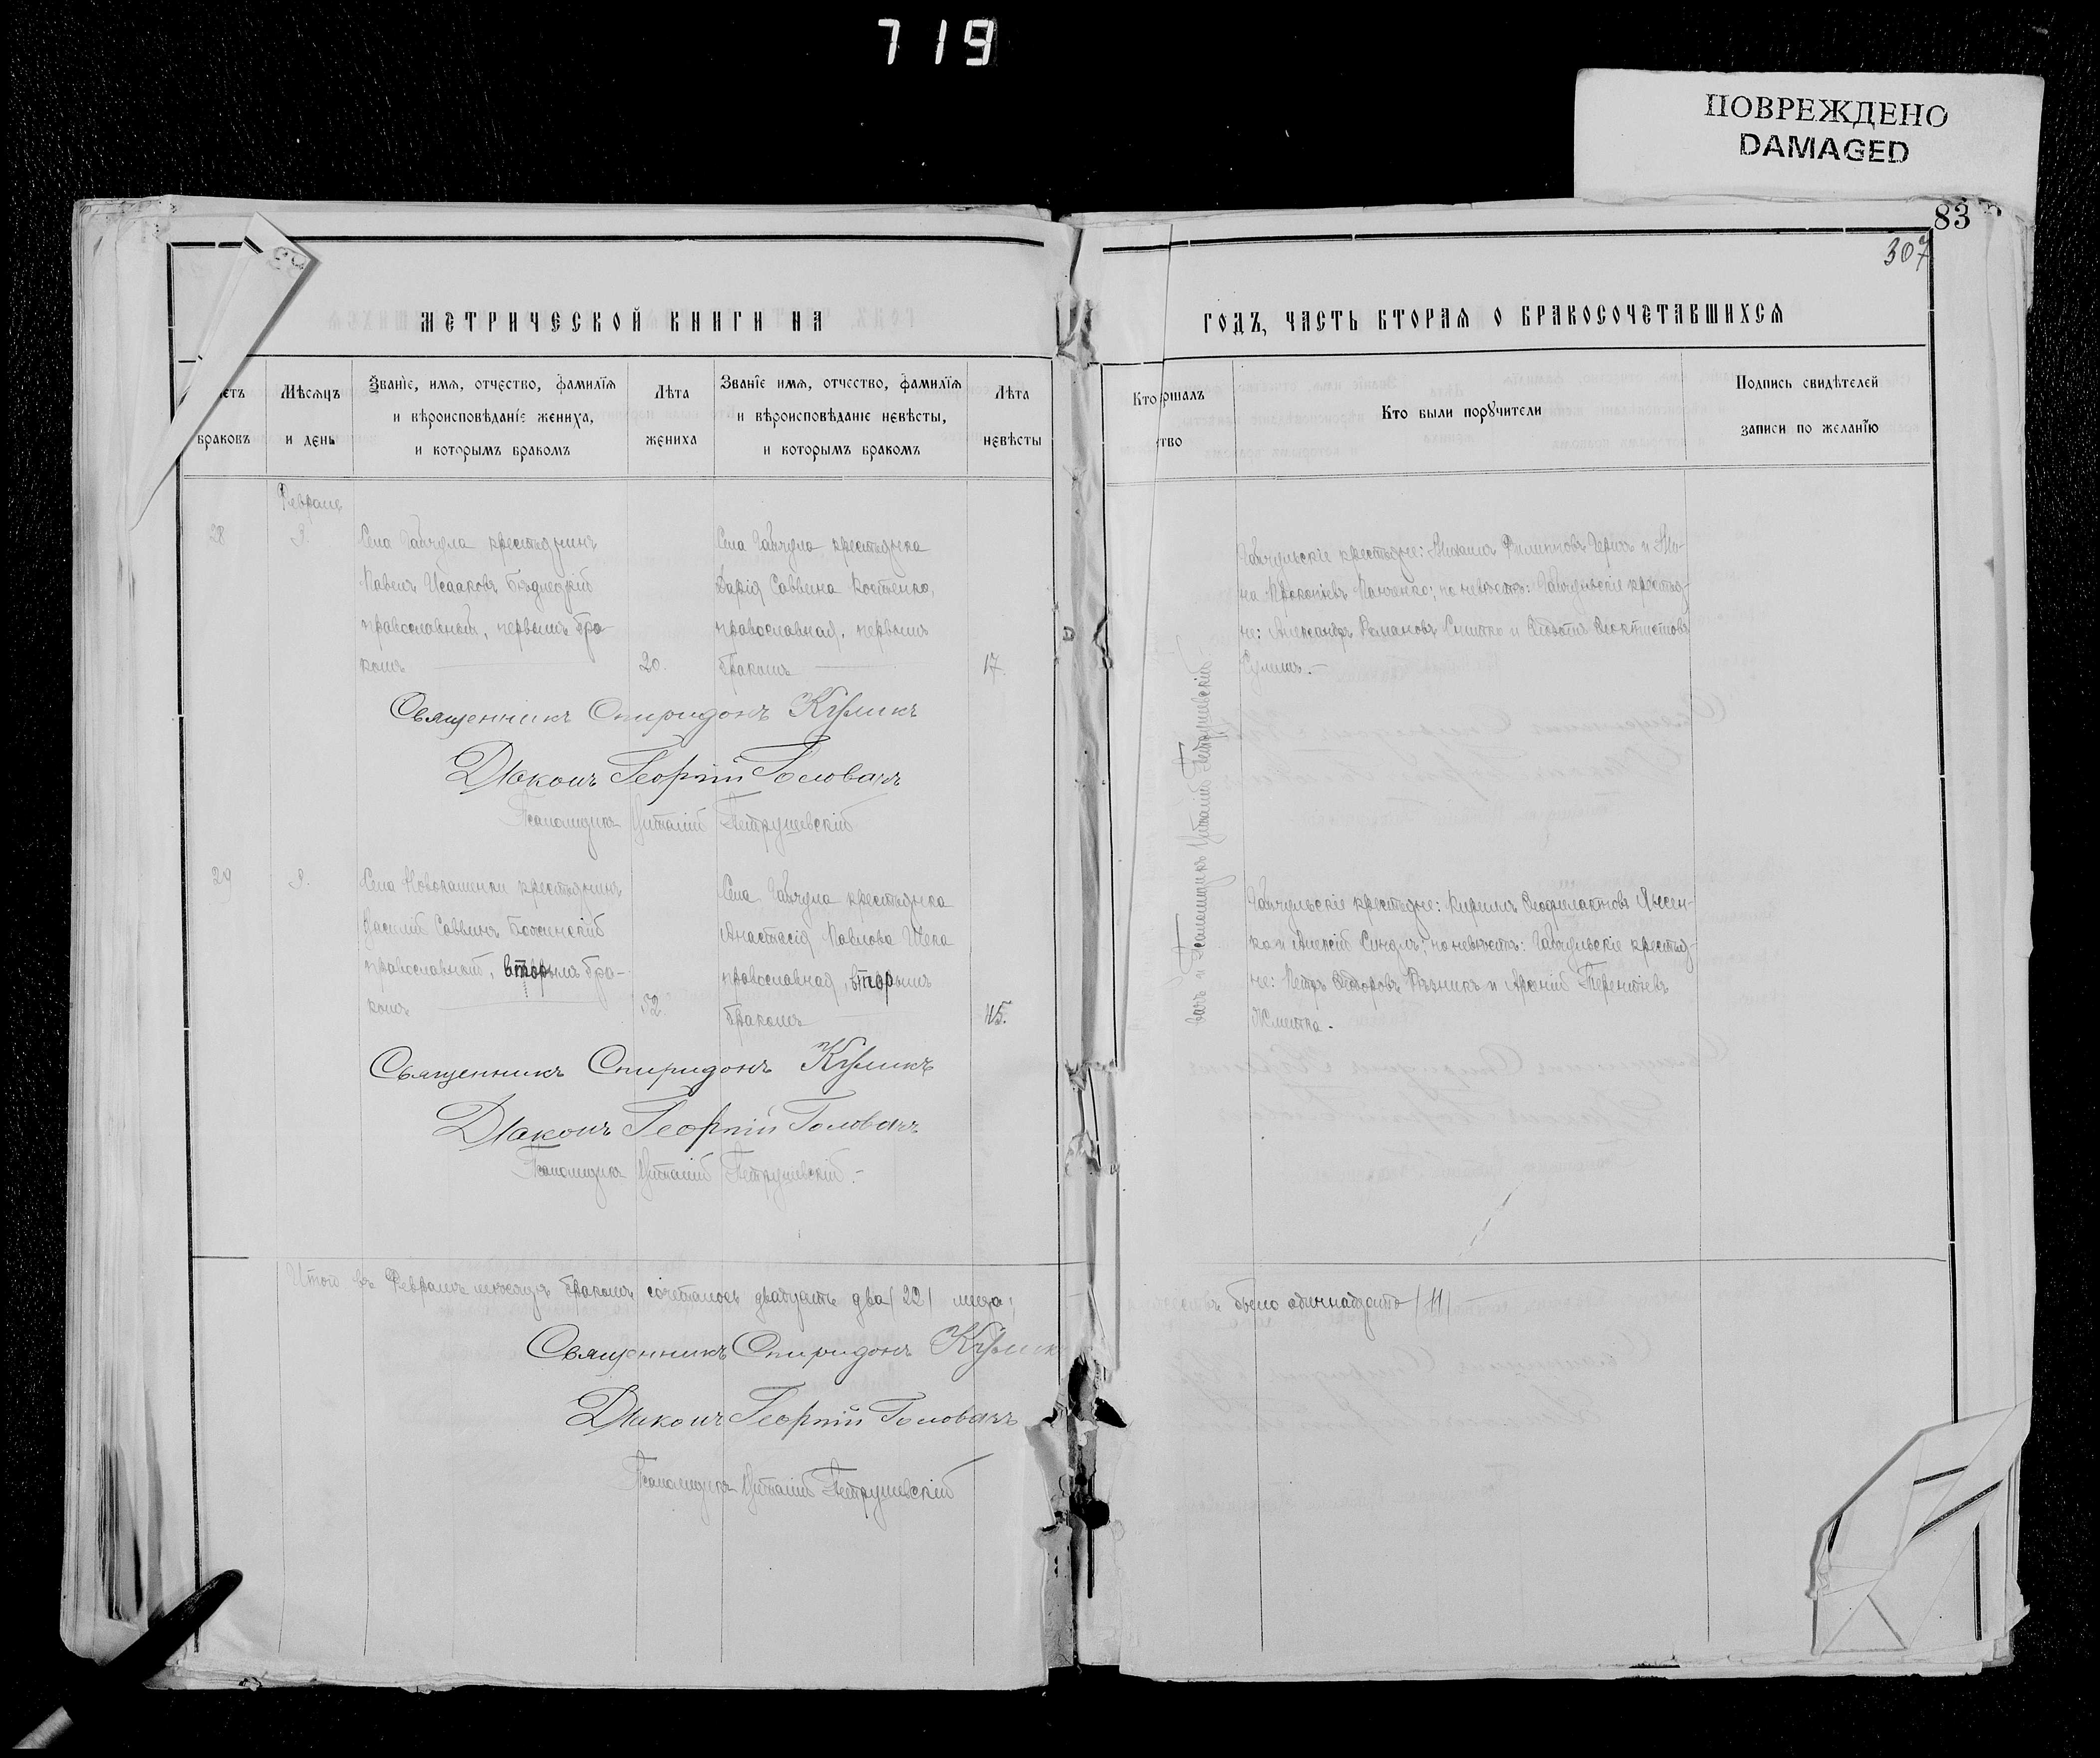 719
ПОВРЕЖДЕНО
DAMAGED
83
307
МЕТРИЧЕСКОЙ КНИГИ НА
ГОДЪ, ЧАСТЬ ВТОРАЯ О БРАКОСОЧЕТАВШИХСЯ
етъ
браковъ
Мѣсяцъ
и день
Званіе, имя, отчество, фамилія
и вѣроисповѣданіе жениха,
и которымъ бракомъ
Лѣта
жениха
Званіе имя, отчество, фамилія
и вѣроисповѣданіе невѣсты,
и которымъ бракомъ
Лѣта
невѣсты
Кто
ршалъ
тво
Кто были поручители
Подпись свидѣтелей
записи по желанію
28
9.
Села Гайчула крестьянинъ
Павелъ Исааковъ
православный, первымъ бра-
комъ
20.
Села Гайчула крестьянка
Дарія Саввина Костенко,
православная, первымъ
бракомъ
17.
Гайчульскіе крестьяне: Михаилъ Филипповъ и
Прокопіевъ Панченко; по невѣстѣ: Гайчульскіе крестья-
не: Александръ Романовъ и
Сулимъ.-
Священникъ Спиридонъ Куликъ
Діаконъ Георгій Голованъ
Псаломщикъ Виталій Петрушевскій
29
9.
Села крестьянинъ
Василій Саввинъ
православный, вторымъ бра-
комъ
52.
Села Гайчула крестьянка
Анастасія Павлова
православная, вторымъ
бракомъ
45.
Гайчульскіе крестьяне: Кириллъ Ѳеофилактовъ Яцен-
ко и Алексій по невѣстѣ: Гайчульскіе крестья-
не: Петръ Ѳедоровъ и Терентіевъ
Священникъ Спиридонъ Куликъ
Діаконъ Георгій Голованъ
Псаломщикъ Виталій Петрушевскій.-
и Псаломщикъ Виталій Петрушевскій
Итого въ Февралѣ мѣсяцѣ бракомъ сочеталось двадцать два /22/ лица;
было одиннадцать /11/
Священникъ Спиридонъ Кулик
Діаконъ Георгій Голованъ
Псаломщикъ Виталій Петрушевскій